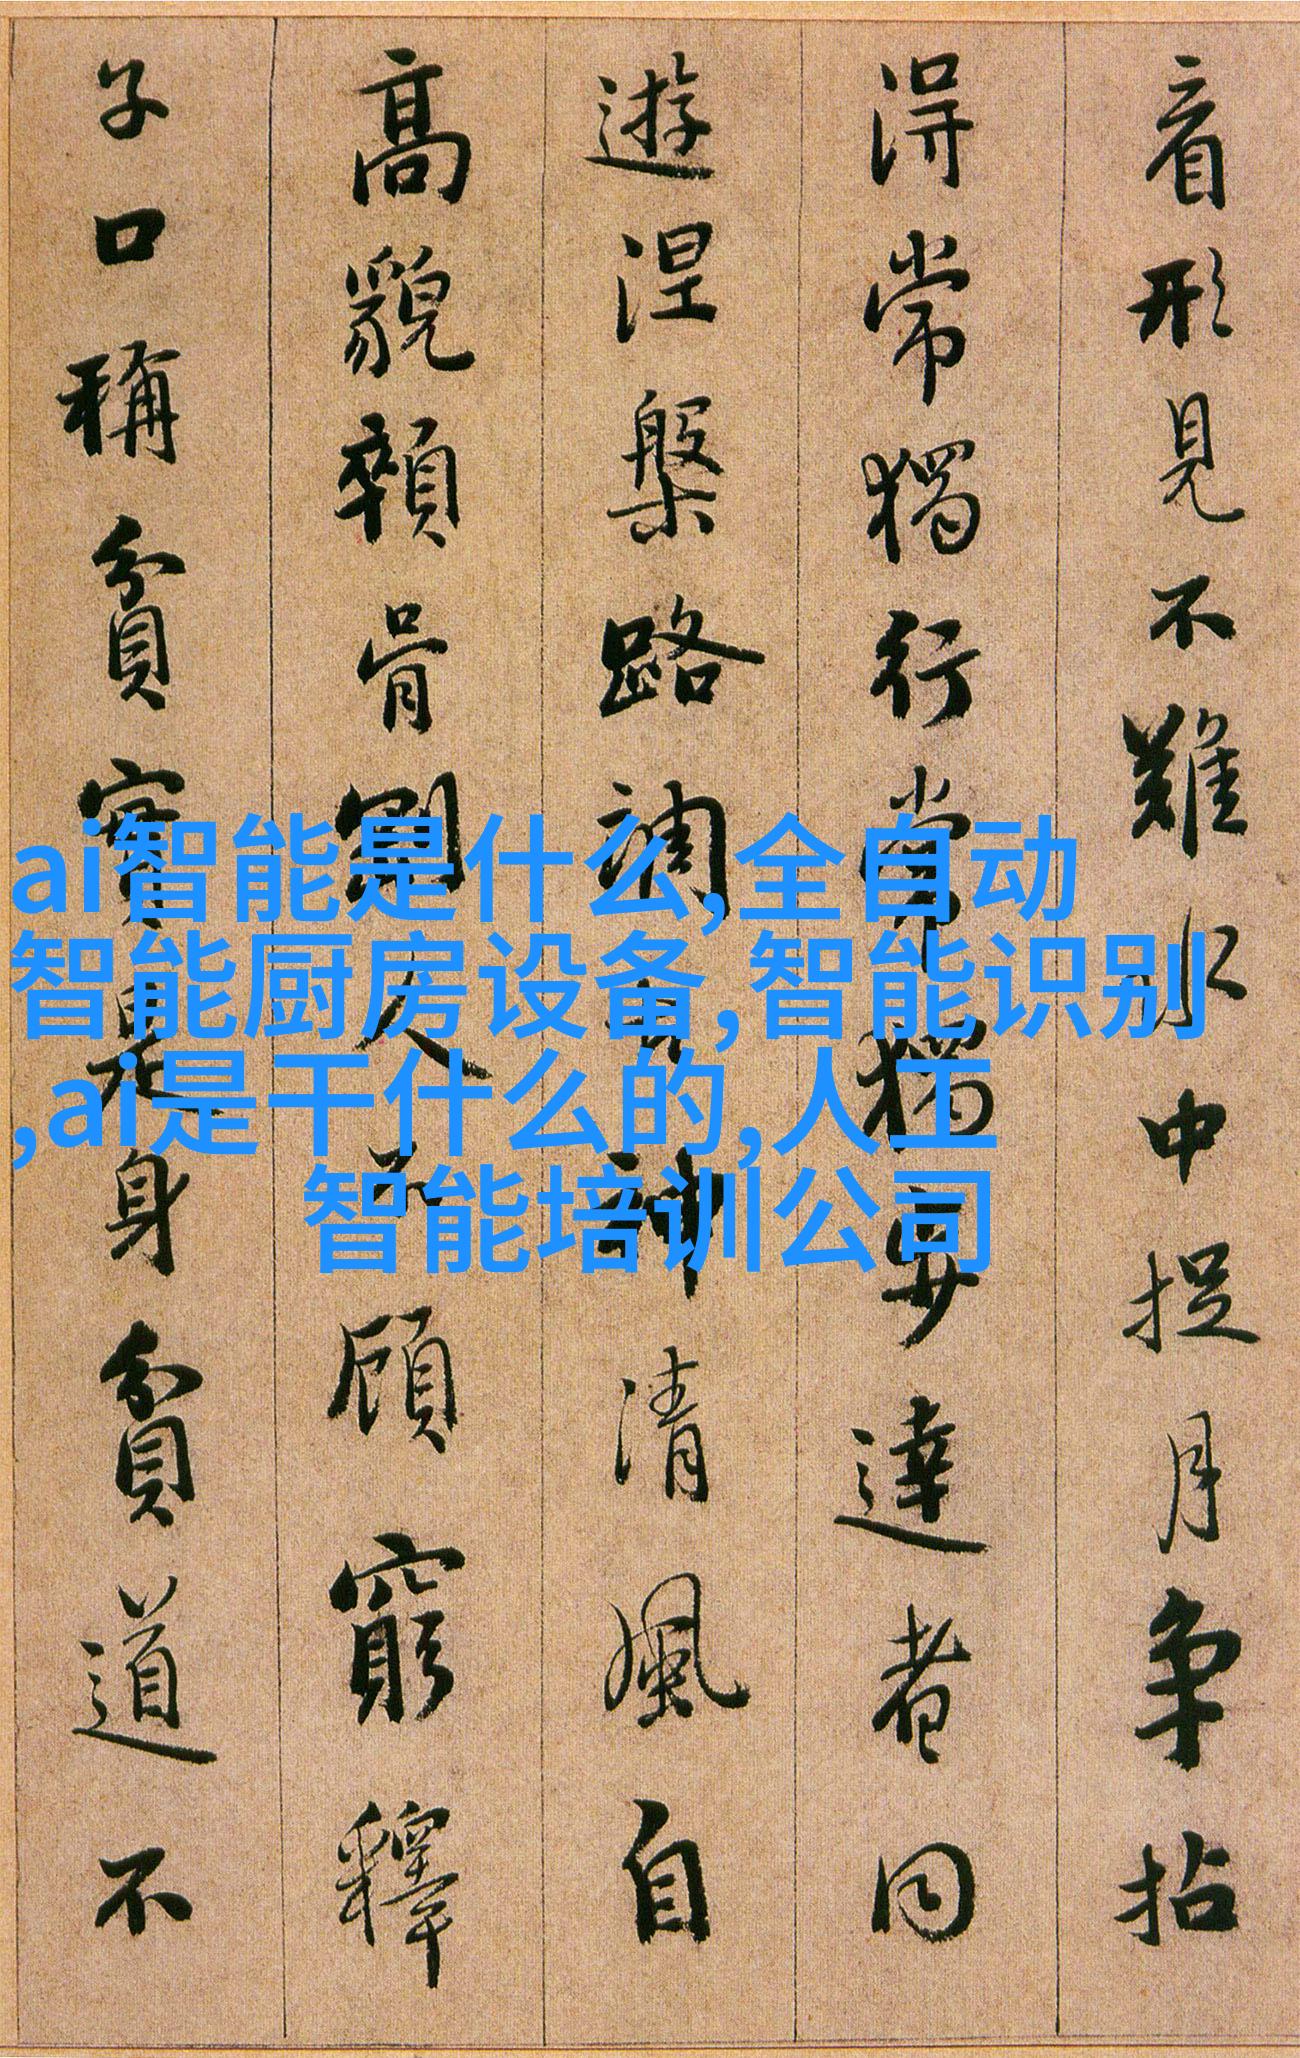 看形見不難水中捉月爭拈
得常獨行常獨步達者同
遊涅槃路調古神清風自
高貌顇骨剛人不顧窮釋
子口稱貧實是身貧道不
ai智能是什么,全自动
智能厨房设备,智能识别
,ai是干什么的,人工
智能培训公司